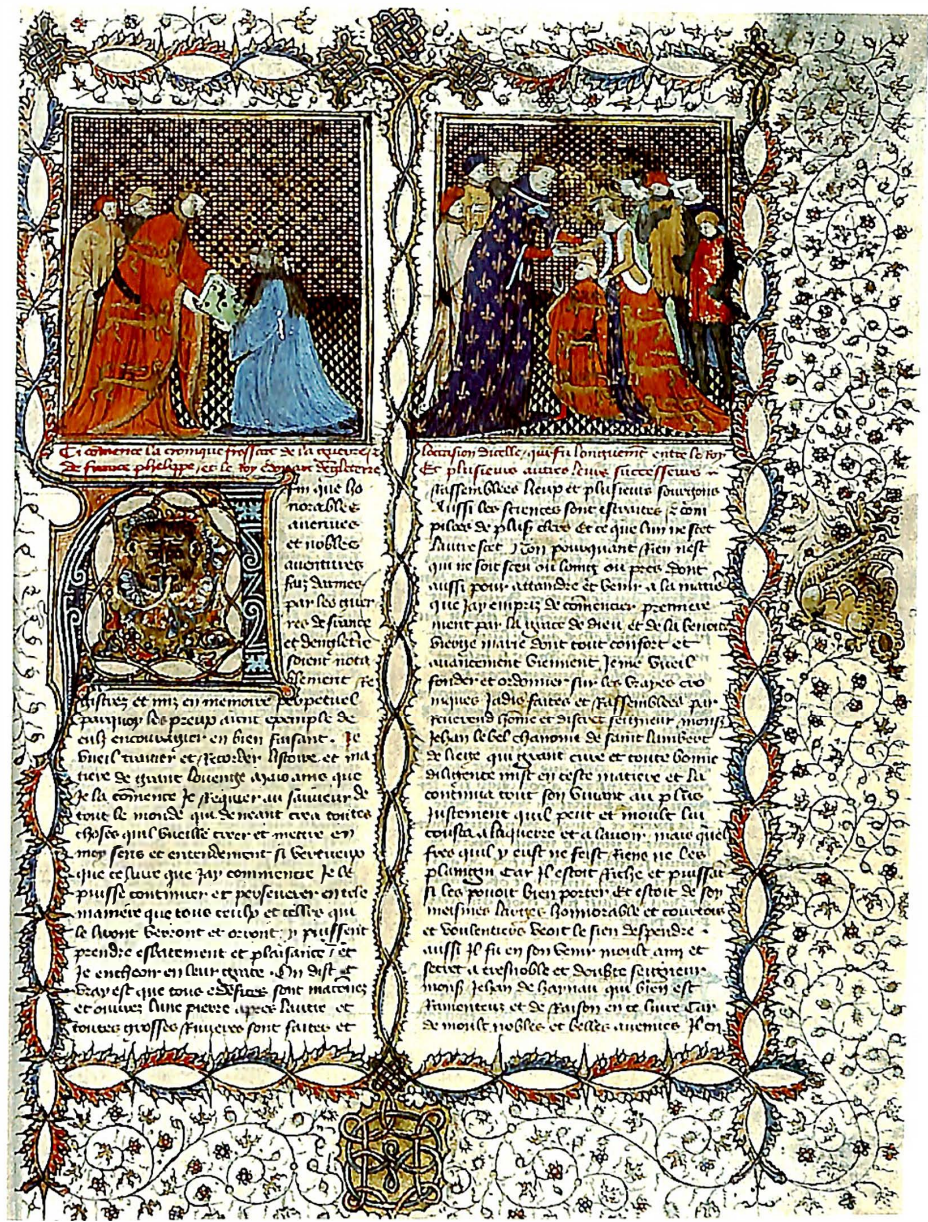 Ci comence la cronique froissart de la guerre
de france phelippe et le roy Edouart dengleterre
Afin que ho
norables
auenues
et nobles
auentures
faiz darmes
par les guer
res de france
et dengleterre
soient nota
blement re
gistrez et mis en memoire perpetuel
parquoy les preux aient exemple de
eulx encouragier en bien faisant. Je
vueil traitier et recorder listoire et ma
tiere de grant louenge mais ains que
Je la comence Je requier au sauueur de
tout le monde qui de neant crea toutes
choses quil vueille creer et mettre en
moy sens et entendement si vertueux
que ce liure que Jay commencie Je le
puisse continuer et perseuerer en tele
maniere que tous ceulx et celles qui
le liront verront et orront y puissent
prendre esbatement et plaisance et
Je encheoir en leur grace. On dist et
vray est que tous edefices sont maconnez
et ouurez lune pierre apres lautre et
toutes grosses riuieres sont faites et
loccasion dicelle, qui fu longuement entre le roy
Et plusieurs autres leurs successeurs
rassemblees de lieux et plusieurs sourgons
Aussi les sciences sont estraites et com
pilees de plus clers et ce que lun ne scet
lautre scet. Non pourquant rien nest
qui ne soit sceu ou loing ou pres dont
aussi pour attaindre et venir a la matiere
que Jay empris de comencier premiere
ment par la grace de dieu et de la benoite
vierge marie dont tout confort et
auancement viennent Je me vueil
fonder et ordonner sur les vrayes cro
niques Jadis faites et rassemblees par
reuerend home et discret seigneur monsr
Jehan lebel chanoine de saint lambert
de liege qui grant cure et toute bonne
diligence mist en ceste matiere et la
continua tout son viuant au plus
Justement quil peut et moult lui
cousta a la querre et a lauoir. mais quel
fres quil y eust ne feist riens ne les
plaingni car Il estoit riche et puissant
si les pouoit bien porter et estoit de soy
meismes larges honnorable et courtois
et voulentiers veoit le sien despendre.
aussi Il fu en son venir moult ami et
secret a tresnoble et doubte seigneur
monsr Jehan de haynau qui bien est
ramenteuz et de raison en ce liure Car
de moult nobles et belles auenues Il en